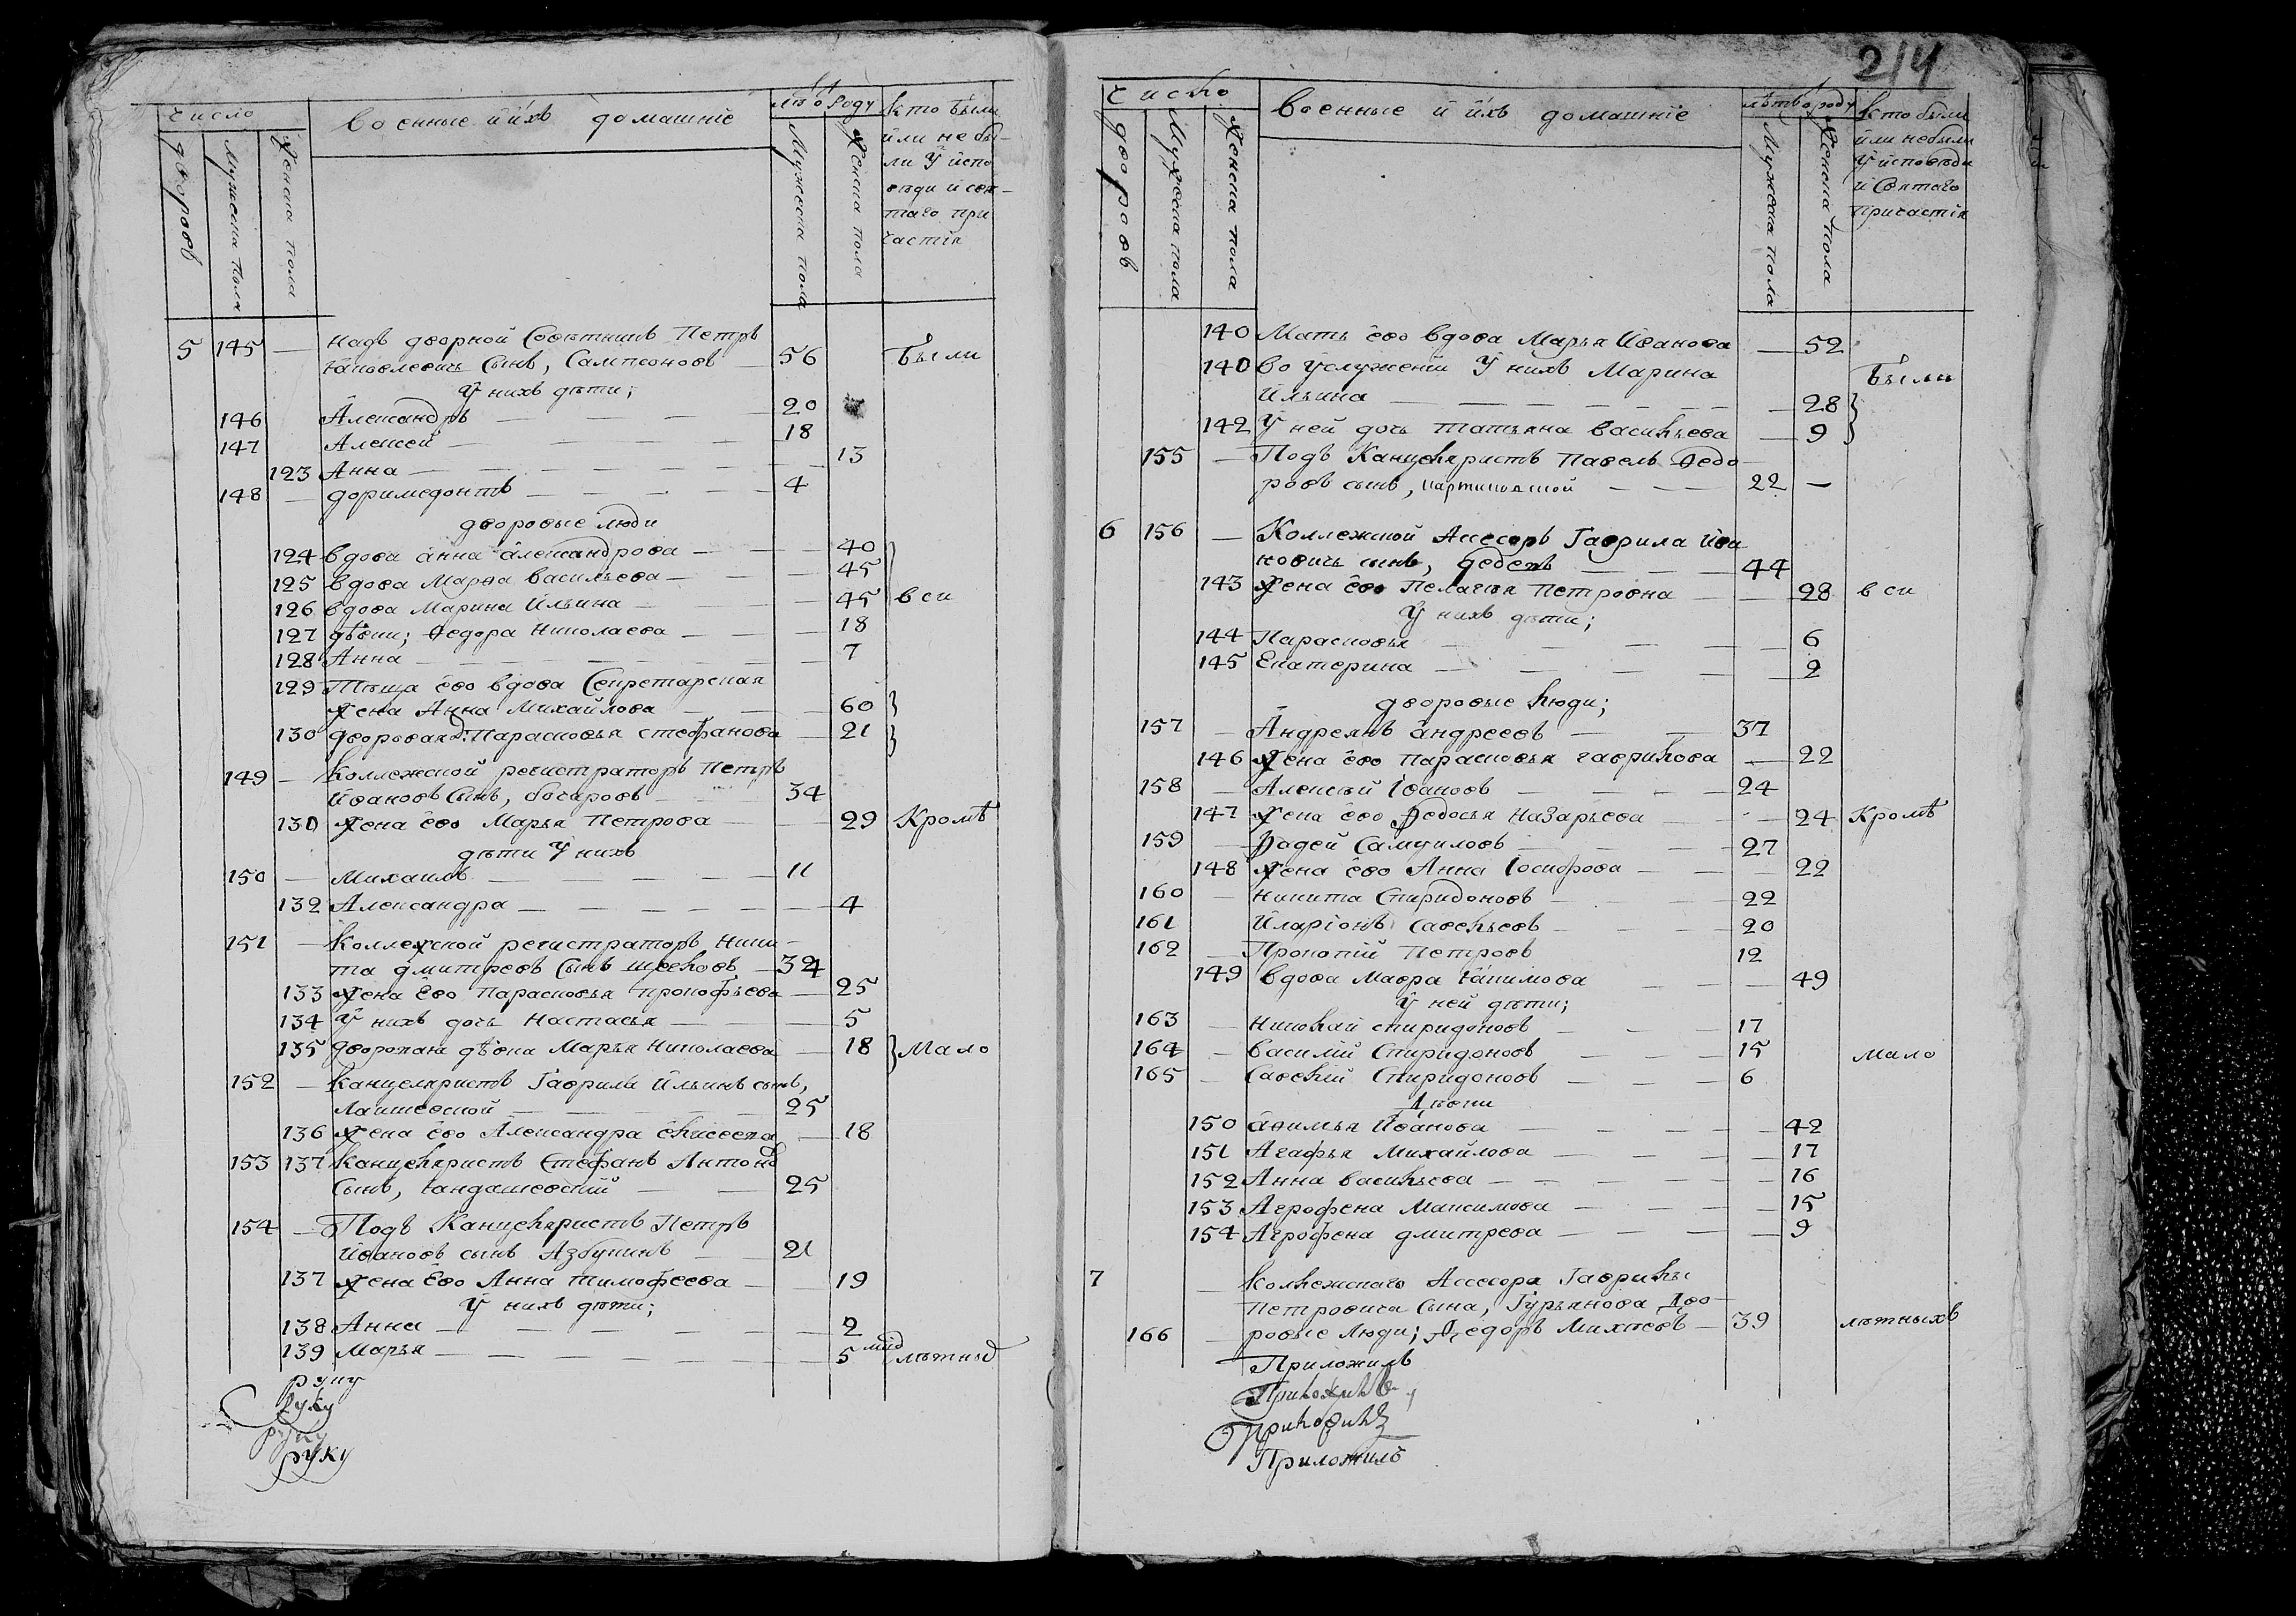 число
военные и ихъ домашнїе
лѣто роду
кто были
или не бы-
ли у испо
вѣди и свя-
таго при
частія
дворовъ
Мужеска пола
Женска пола
Мужеска пола
Женска пола
5 145 — Надъ дворной Советникъ Петръ
Яковлевичь Сынъ, Сампсоновъ — 56 были
У нихъ дѣти;
146 Александръ — — — 20
147 Алексей — — — — 18
123 Анна — — — — — 13
148 — доримедонтъ — — — — 4
дворовые люди
124 вдова анна александрова — — — 40
125 вдова Марфа васильева — — — 45
126 вдова Марина Ильина — — — 45 вси
127 дѣвки; Федора Николаева — — — 18
128 Анна — — — — — — 7
129 Тѣща ево вдова Секретарская
жена Анна Михайлова — — — 60
130 дворовая д: Парасковья стефанова — 21
149 — Коллежской регистраторъ Петръ
Ивановъ Сынъ, бочаровъ — — 34
130 жена ево Марья Петрова — — 29 Кромѣ
дѣти у нихъ
150 — Михаилъ — — — — 11
132 Александра — — — — — 4
151 — Коллежской регистраторъ Ники-
та дмитреевъ Сынъ — 32
133 жена Ево Парасковья прокофьева — 25
134 У нихъ дочь Настасья — — — 5
135 дворовая дѣвка Марья Николаева — 18 Мало
152 — Канцеляристъ Гаврила Ильинъ сынъ,
Лаишевской — — — 25
136 жена ево Александра Елисеева — 18
153 137 Канцеляристъ Стефанъ Антоно
Сынъ, — 25
154 — Подъ Канцеляристъ Петръ
Ивановъ сынъ Азбукинъ — — 21
137 жена Ево Анна тимофеева — 19
У нихъ дѣти;
138 Анна — — — — — — 2
139 Марья — — — — — — 5 лѣтныхъ
руку
руку
руку
руку
214
число
военные и ихъ домашнїе
лѣтъ о роду
кто были
или небыли
у исповѣди
и Святаго
Причастія
дворовъ
Мужеска пола
Женска пола
Мужеска пола
Женска пола
140 Мать ево вдова Марья Иванова — 52
140 во услуженїи У нихъ Марина были
Ильина — — — — — — — 28
142 У ней дочь татьяна васильева — 9
155 — Подъ Канцеляристъ Павелъ Федо
ровъ сынъ, — — — 22 —
6 156 — Коллежской Ассесоръ Гаврила Ива
новичь сынъ, — — 44
143 жена ево Пелагея Петровна — — 28 вси
У нихъ дѣти;
144 Парасковья — — — — — 6
145 Екатерина — — — — — 2
дворовые люди;
157 — Андреянъ андреевъ — — 37
146 жена ево Парасковья гаврилова — 22
158 — Алексѣй Івановъ — — — — 24
147 жена ево Федосья Назарьева — — — 24 Кромѣ
159 — Фадей Самуиловъ — — — 27
148 жена ево Анна Іосифова — — — 22
160 — Никита Спиридоновъ — — — 22
161 Иларїонъ Савельевъ — — — 20
162 — Прокопїй Петровъ 12
149 вдова Мавра Якимова — — — 49
У ней дѣти;
163 — Николай спиридоновъ — — — 17
164 — василїй Спиридоновъ — — — 15 мало
165 — Савелїй Спиридоновъ — — — 6
Дѣвки
150 афимья Иванова — — — — — 42
151 Агафья Михайлова — — — — 17
152 Анна васильева — — — — — — 16
153 Агрофена Максимова — — — — 15
154 Агрофена дмитрева — — — — — 9
7 — Коллежскаго Ассесора Гаврилы
Петровича Сына, Гурьянова Дво-
166 — ровые Люди; Федоръ Михѣевъ — 39 лѣтныхъ
Приложилъ
Приложилъ
Приложилъ
Приложилъ